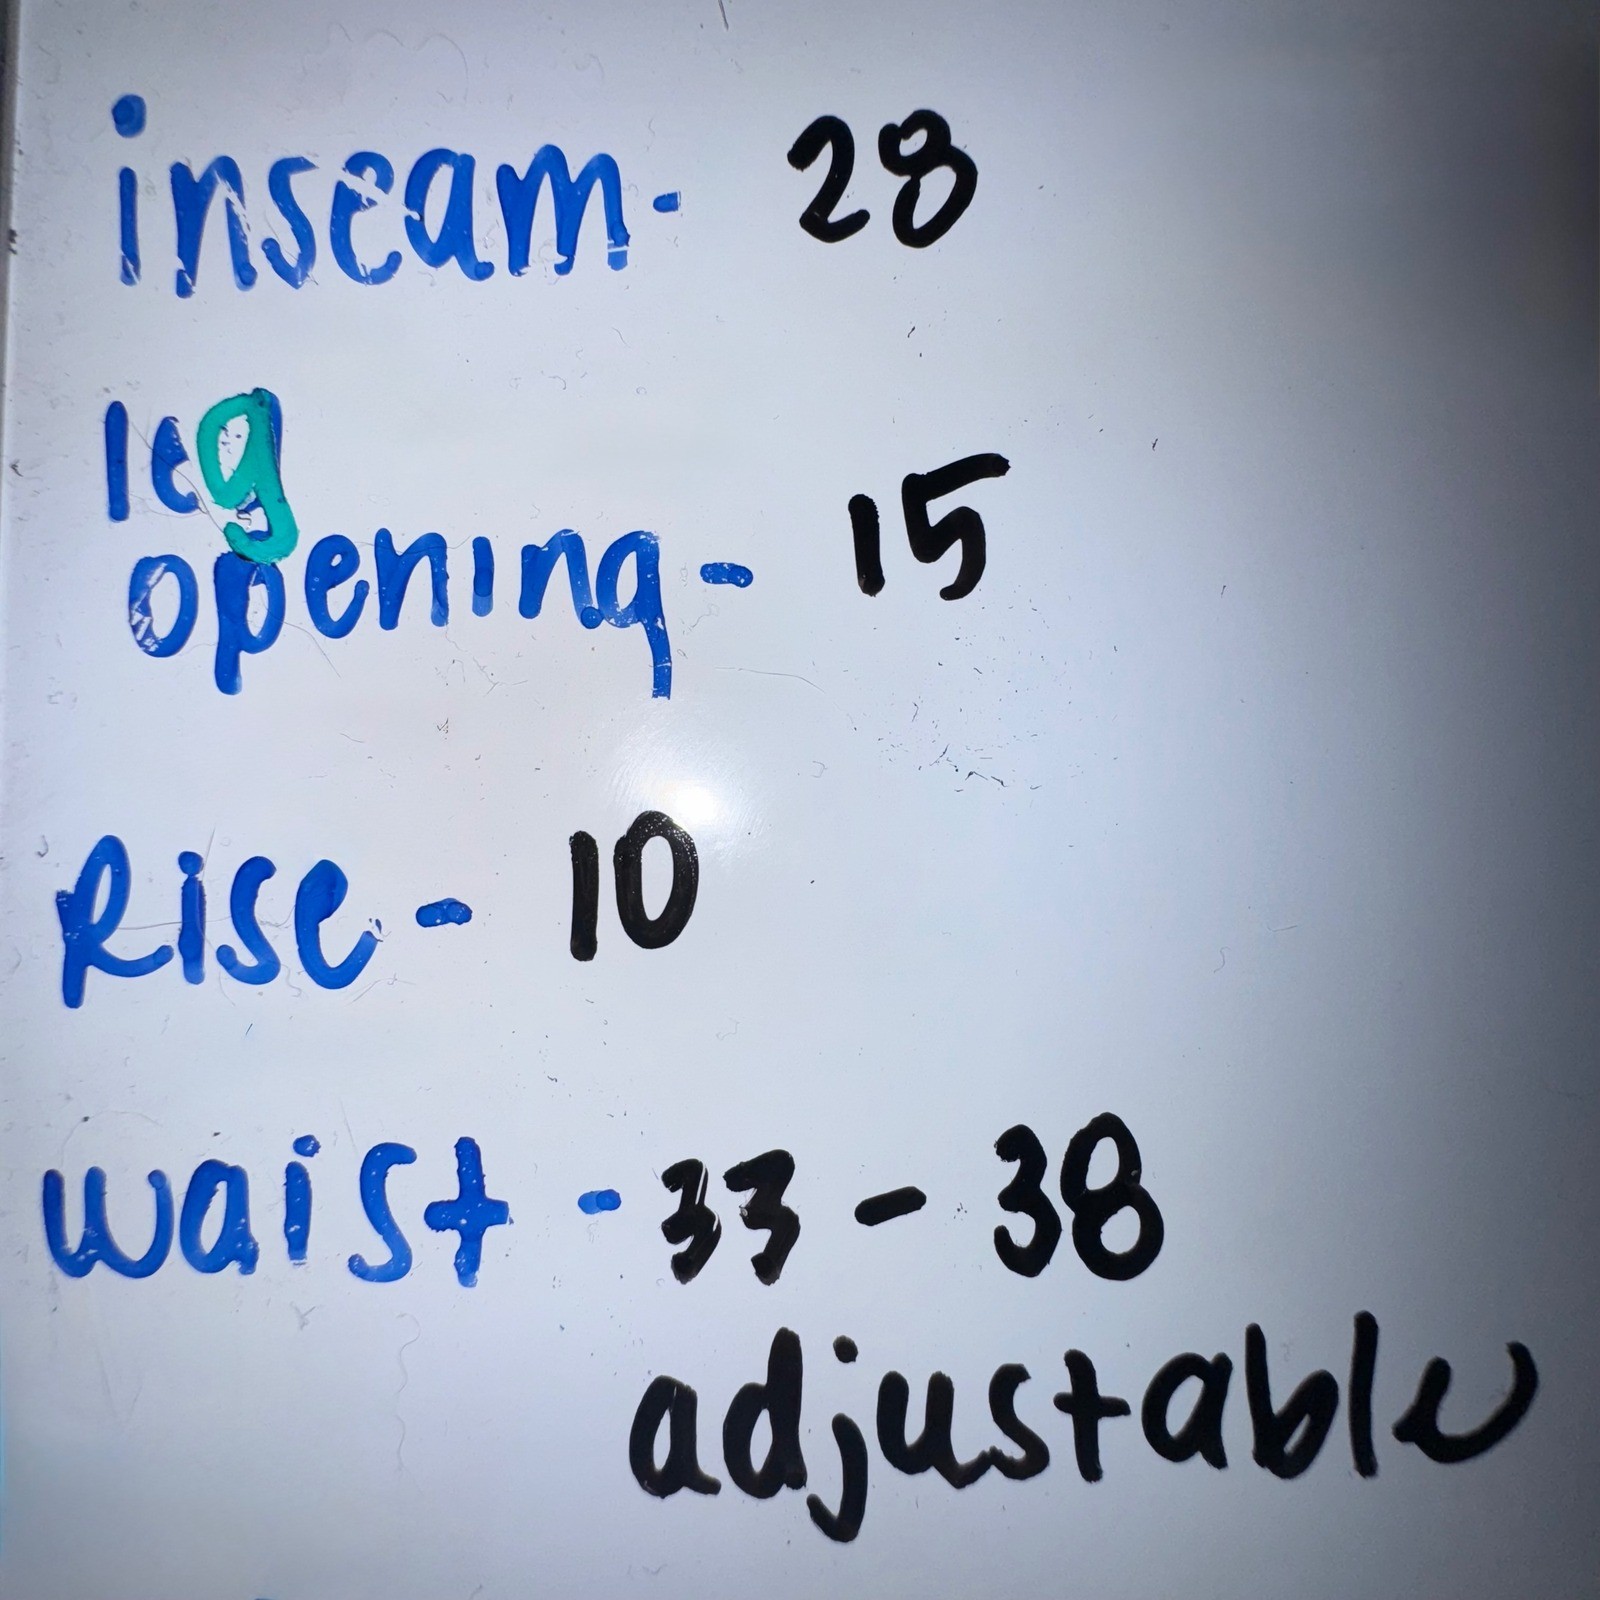 inseam- 28
leg
opening- 15
Rise- 10
waist -33 - 38
adjustable